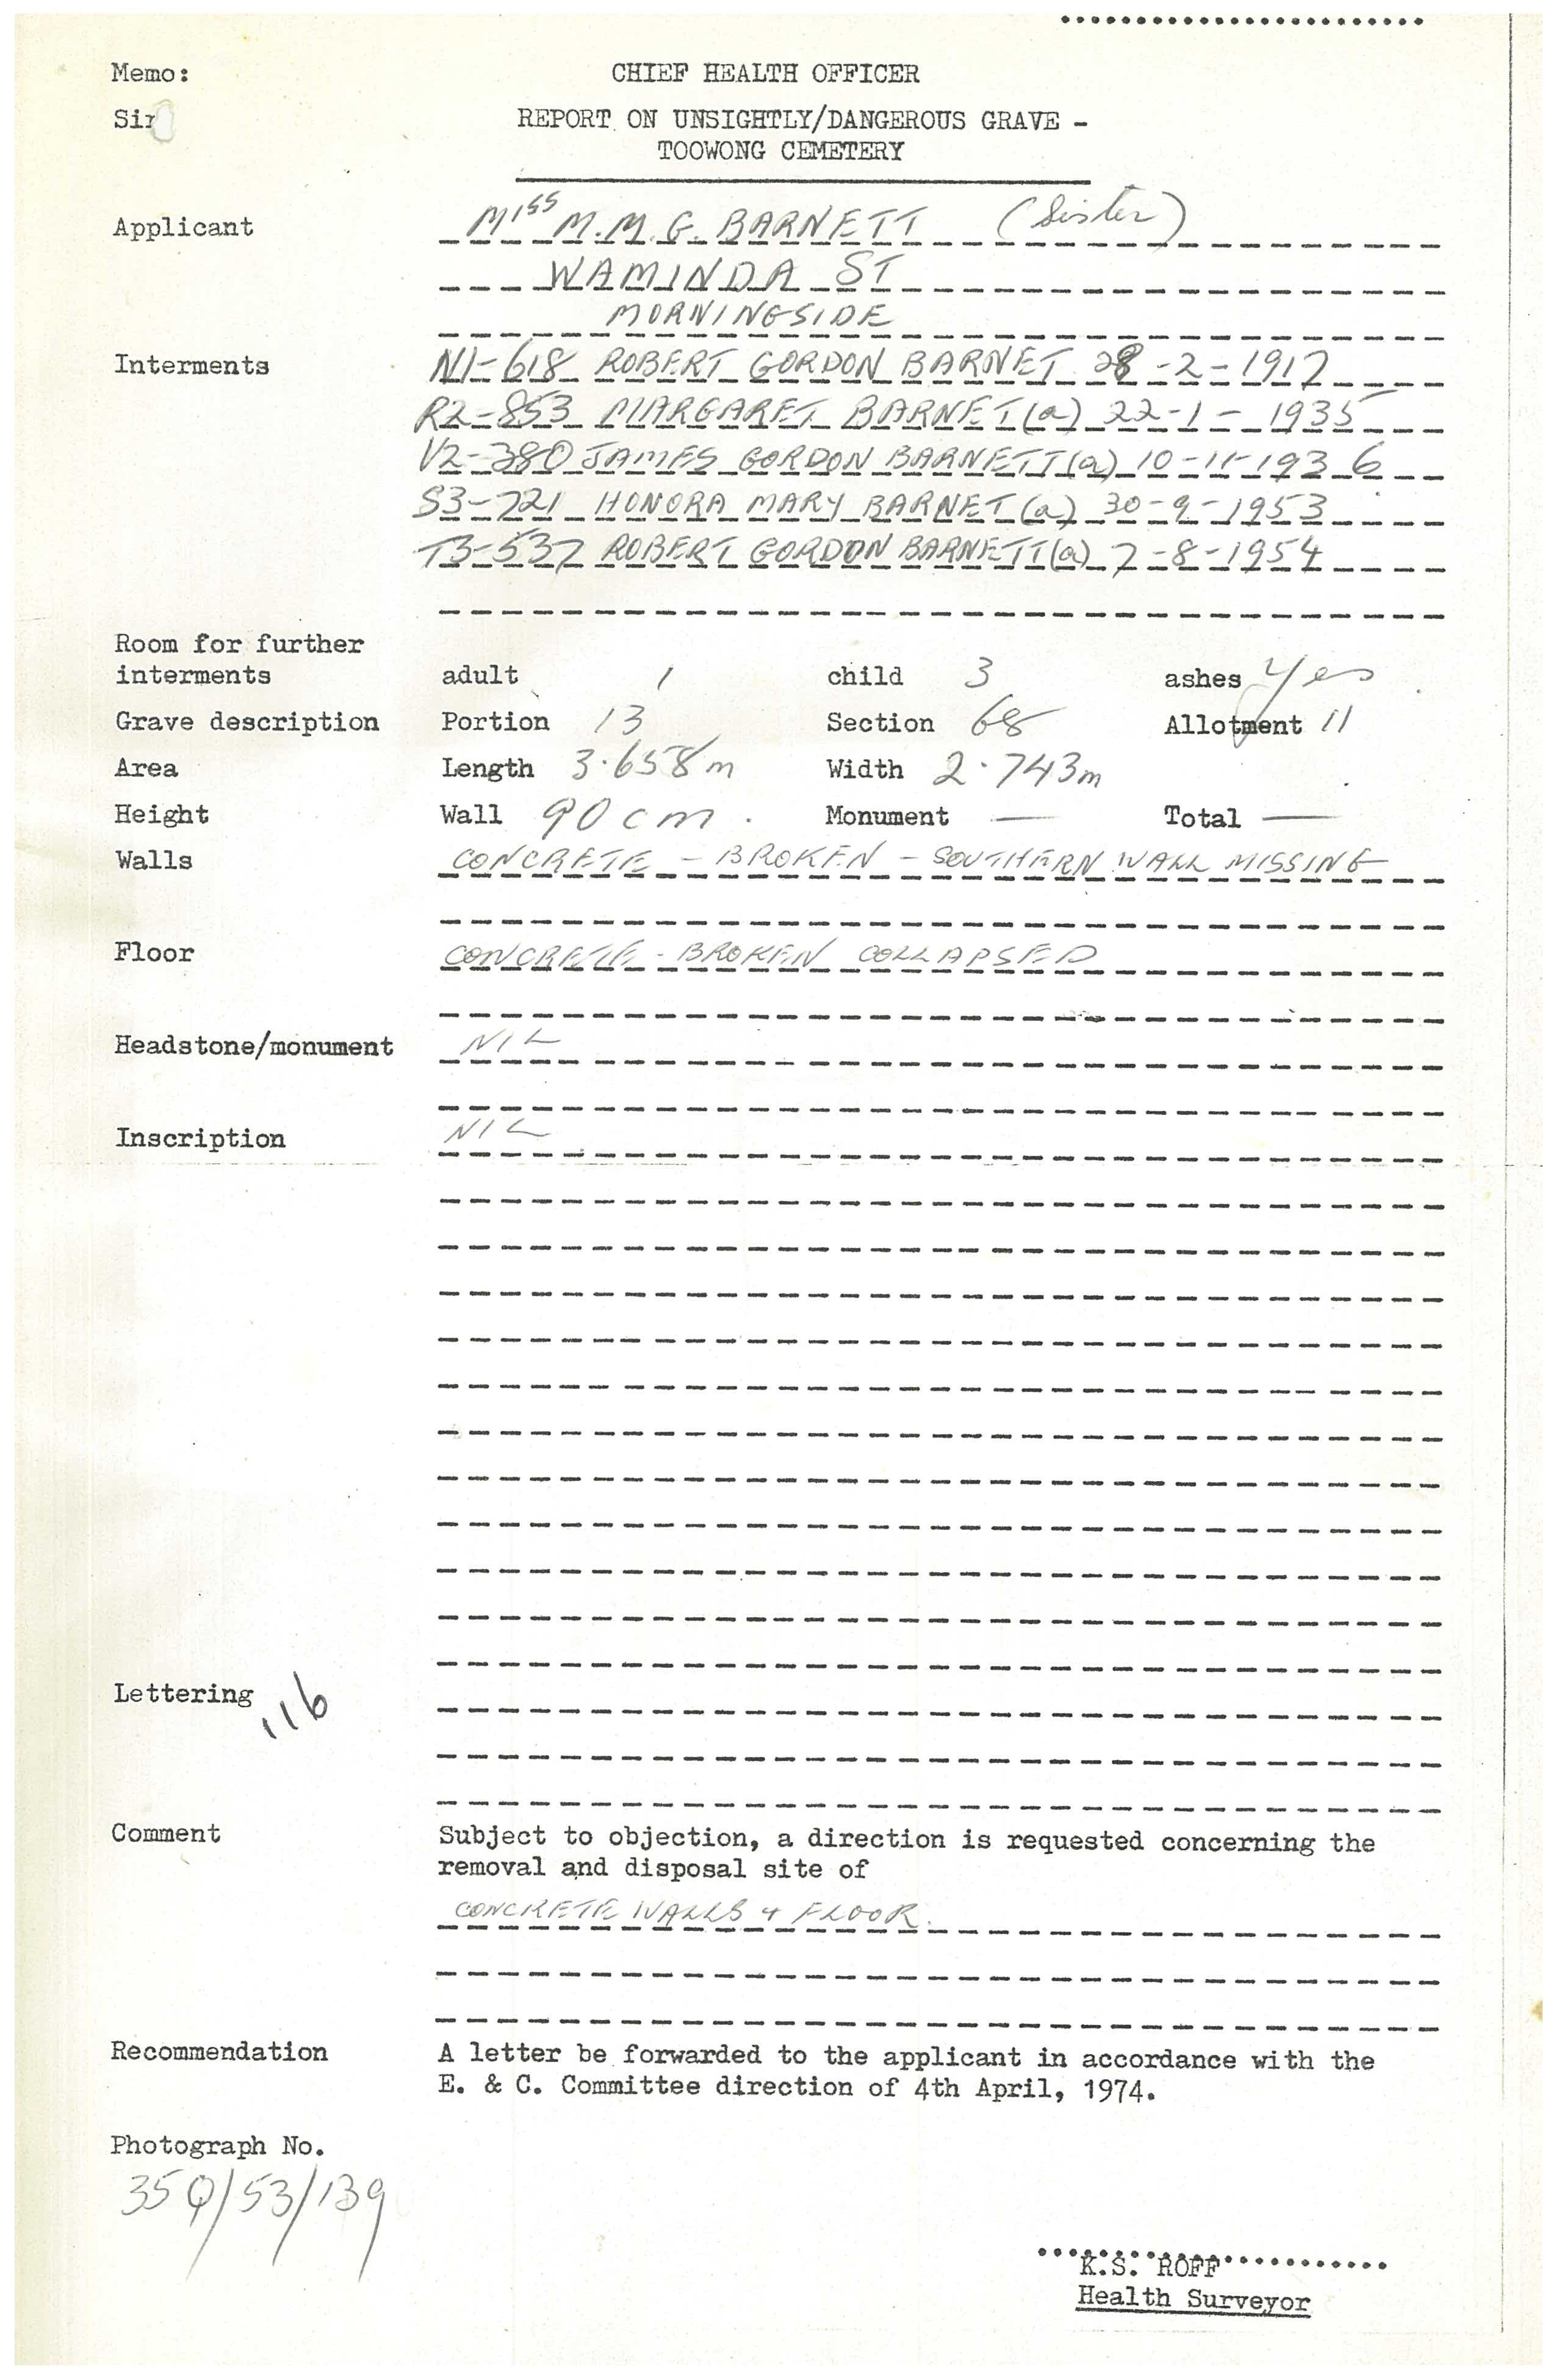 Memo: CHIEF HEALTH OFFICER
Sir REPORT ON UNSIGHTLY/DANGEROUS GRAVE -
TOOWONG CEMETERY
Applicant Miss M.M.G. BARNETT (Sister)
WAMINDA ST
MORNINGSIDE
Interments N1-618 ROBERT GORDON BARNET 28-2-1917
R2-853 MARGARET BARNET (a) 22-1-1935
V2-380 JAMES GORDON BARNETT (a) 10-11-1936
S3-721 HONORA MARY BARNET (a) 30-9-1953
T3-537 ROBERT GORDON BARNETT (a) 7-8-1954
Room for further
interments adult 1 child 3 ashes Yes
Grave description Portion 13 Section 68 Allotment 11
Area Length 3.658m Width 2.743m
Height Wall 90cm. Monument — Total —
Walls CONCRETE - BROKEN - SOUTHERN WALL MISSING
Floor CONCRETE - BROKEN COLLAPSED
Headstone/monument NIL
Inscription NIL
Lettering 116
Comment Subject to objection, a direction is requested concerning the
removal and disposal site of
CONCRETE WALLS & FLOOR.
Recommendation A letter be forwarded to the applicant in accordance with the
E. & C. Committee direction of 4th April, 1974.
Photograph No.
35Q/53/139
K.S. ROFF
Health Surveyor